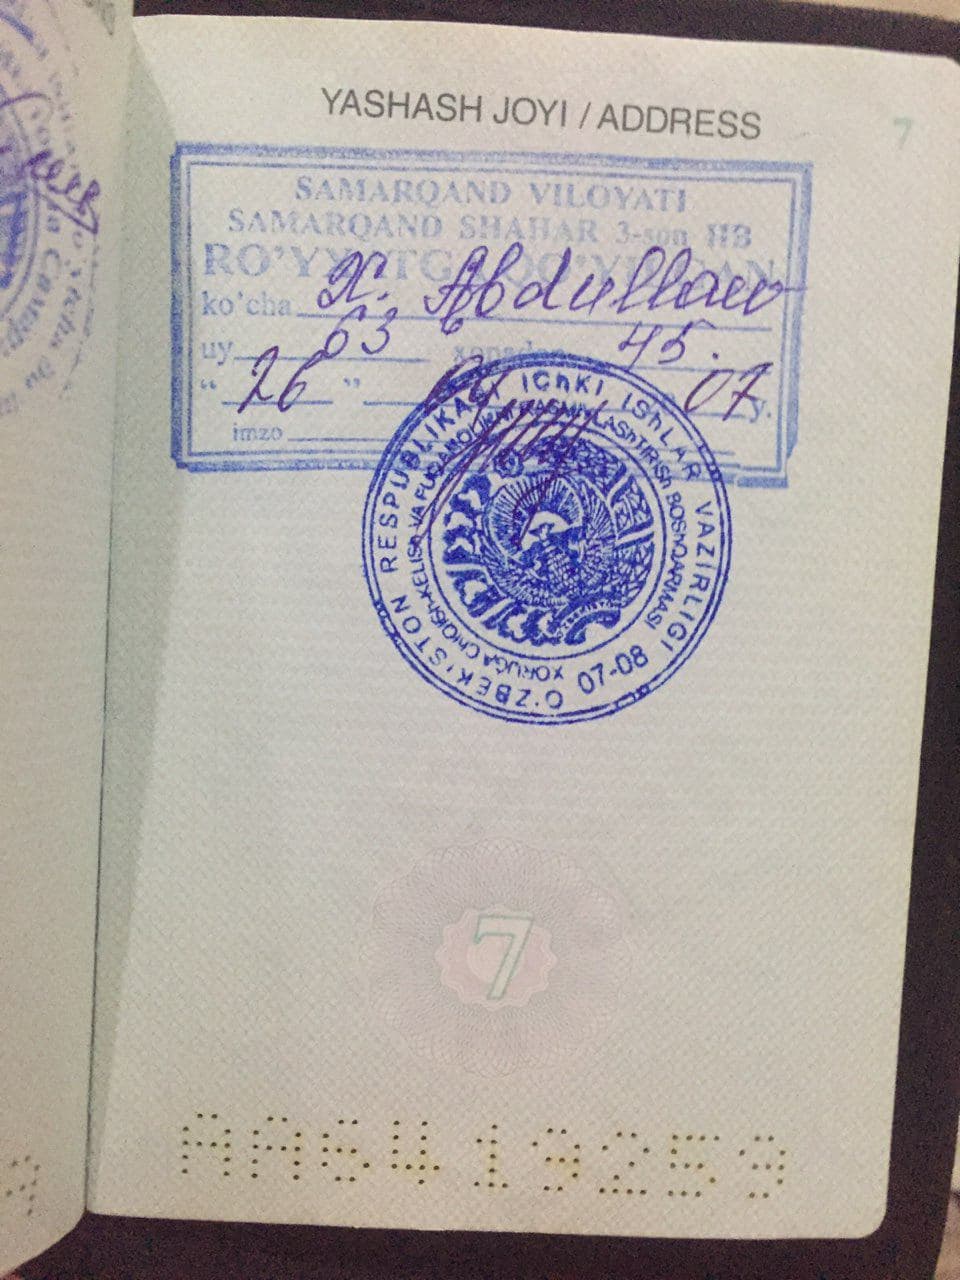 YASHASH JOYI / ADDRESS
7
SAMARQAND VILOYATI
SAMARQAND SHAHAR 3-son IIB
RO'YXATGA QO'YILGAN
ko'cha X. Abdullaev
uy 63 xonadon 45.
"26" 07 y.
imzo
O'ZBEKISTON RESPUBLIKASI IChKI IShLAR VAZIRLIGI
XORIJGA ChIQISh-KELISh VA FUQAROLIKNI RASMIYLAShTIRISh BOShQARMASI
07-08
7
AA6419259